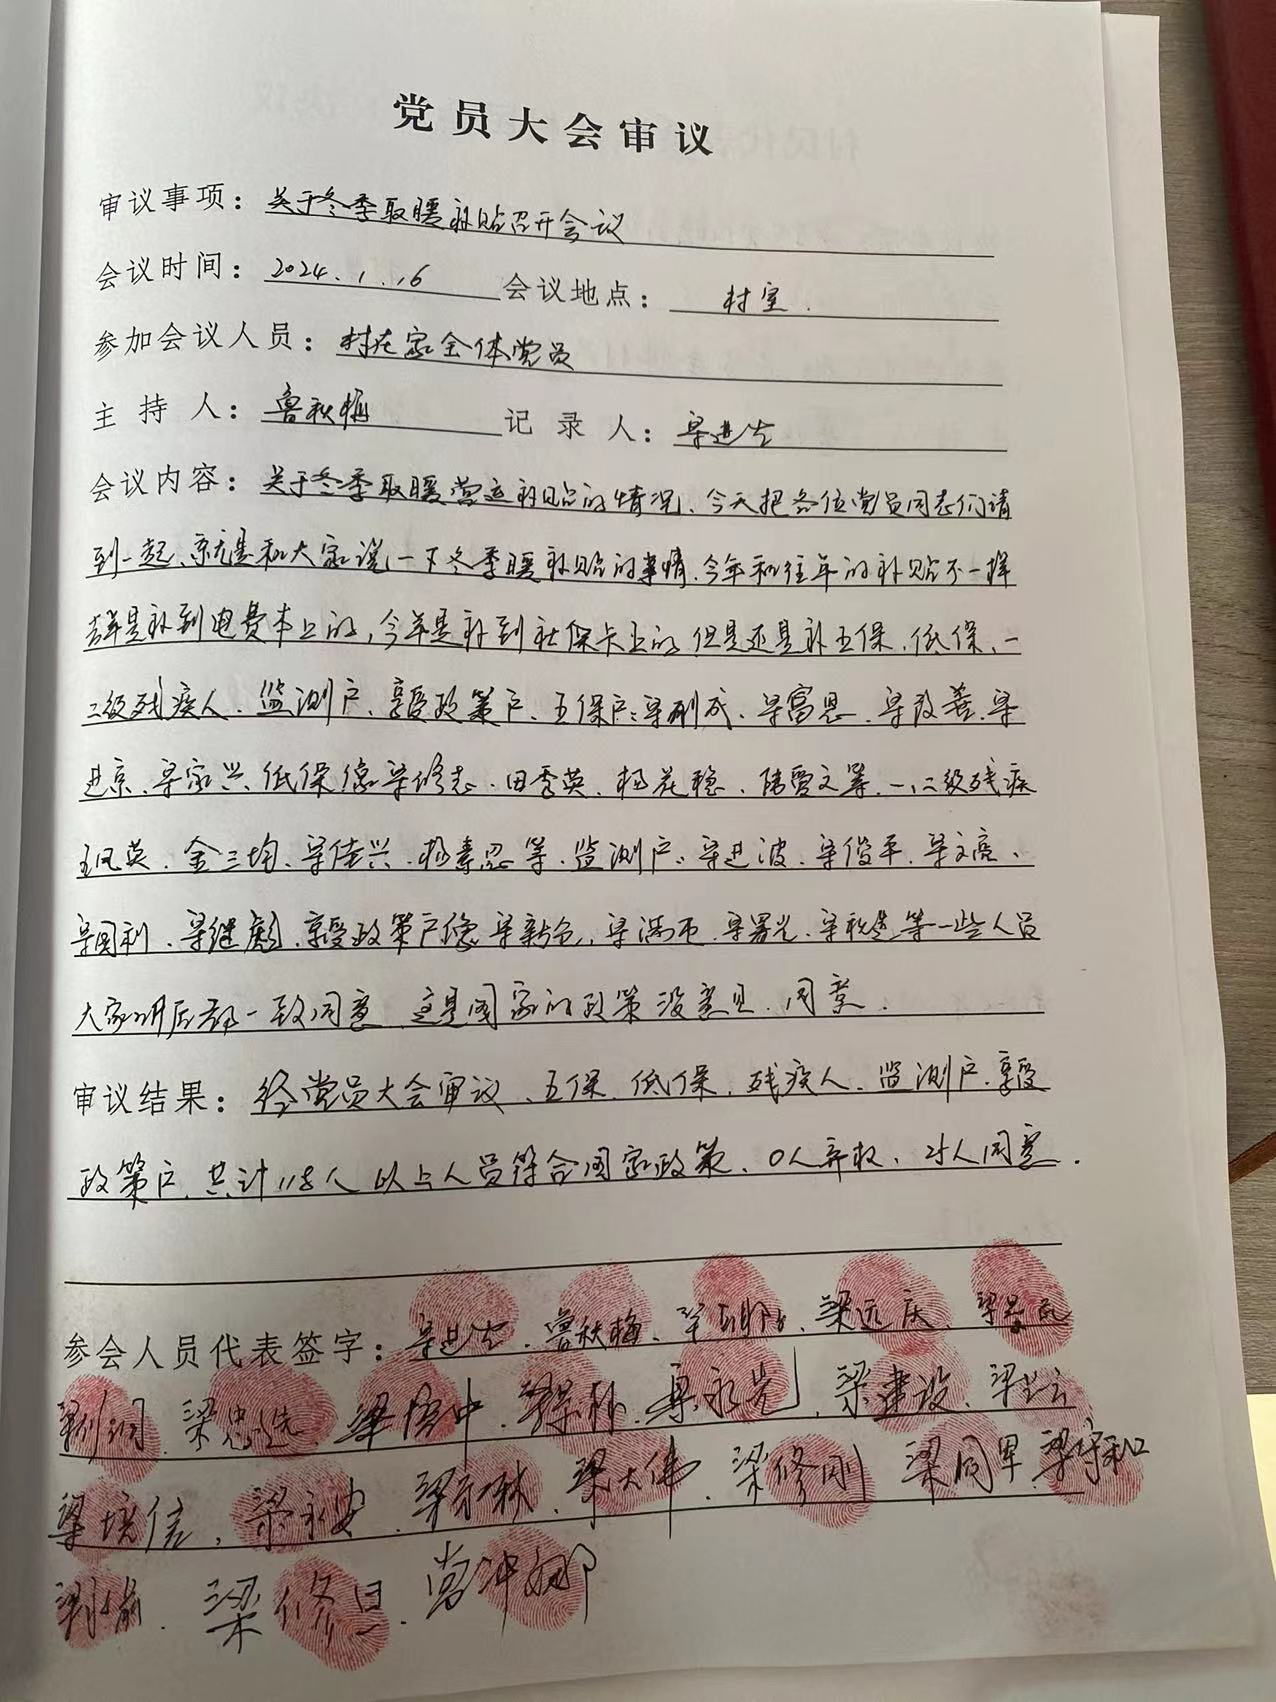 党员大会审议
审议事项：关于冬季取暖补贴召开会议
会议时间：2024.1.16 会议地点：村室.
参加会议人员：村在家全体党员
主持人：鲁秋梅 记录人：梁进生
会议内容：关于冬季取暖营运补贴的情况、今天把各位党员同志们请
到一起、就是和大家说一下冬季暖补贴的事情.今年和往年的补贴不一样
去年是补到电费本上的，今年是补到社保卡上的.但是还是补五保.低保、一
二级残疾人.监测户、享受政策户、五保户：梁 成、梁富恩.梁改善.梁
进京、梁家兴.低保像梁修志.田秀英、杨花稳、陆雪文等.一、二级残疾
王凤英.金三均、梁佳兴.杨素恩等.监测户：梁进波.梁俊平.梁文亮、
梁国利.梁继彪.享受政策户像梁新 、梁满 .梁署光.梁秋 等一些人员
大家听后都一致同意 这是国家的政策没意见.同意.
审议结果：经党员大会审议、五保.低保.残疾人.监测户.享受
政策户.共计118人 以上人员符合国家政策、0人弃权、21人同意.
参会人员代表签字：梁进生.鲁秋梅、梁远庆
梁忠选 梁永岩.梁建设、
梁培信，梁永安.梁大伟.梁修刚 梁同军.梁守和
梁修恩.